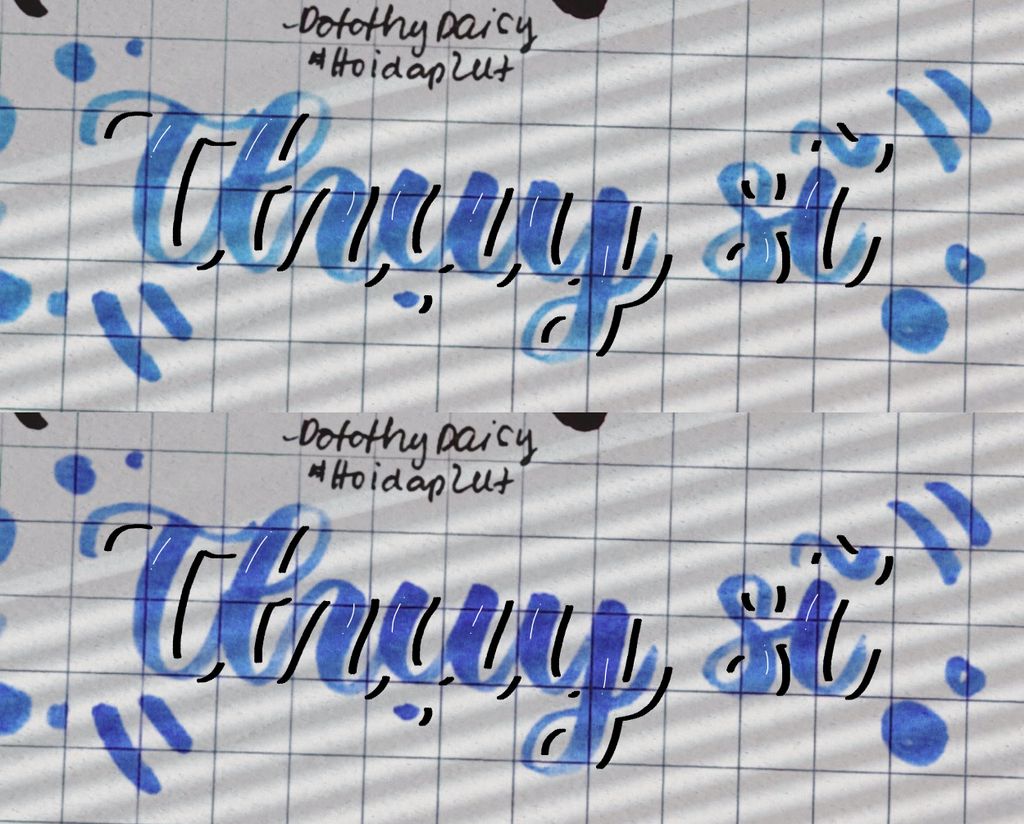 -Dorothy Daicy
#Hoidap247
Thụy sĩ
-Dorothy Daicy
#Hoidap247
Thụy sĩ